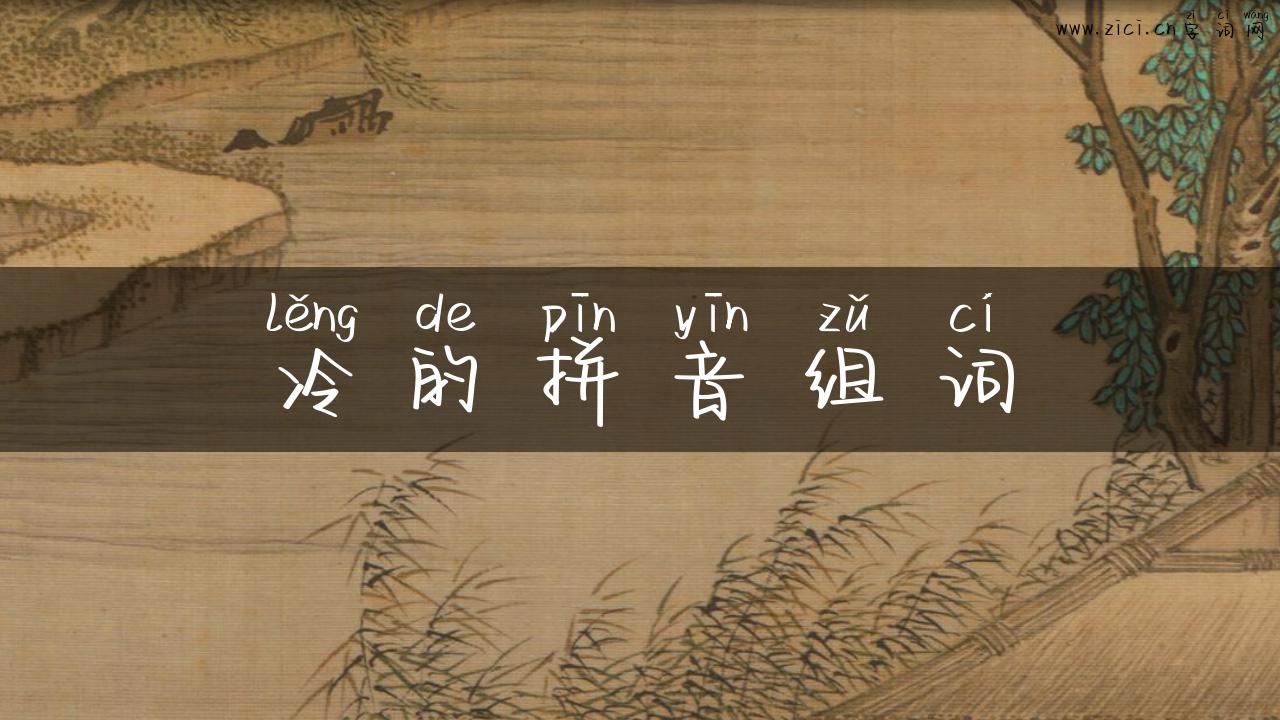 zì cí wǎng
www.zici.cn字词网
lěng de pīn yīn zǔ cí
冷的拼音组词